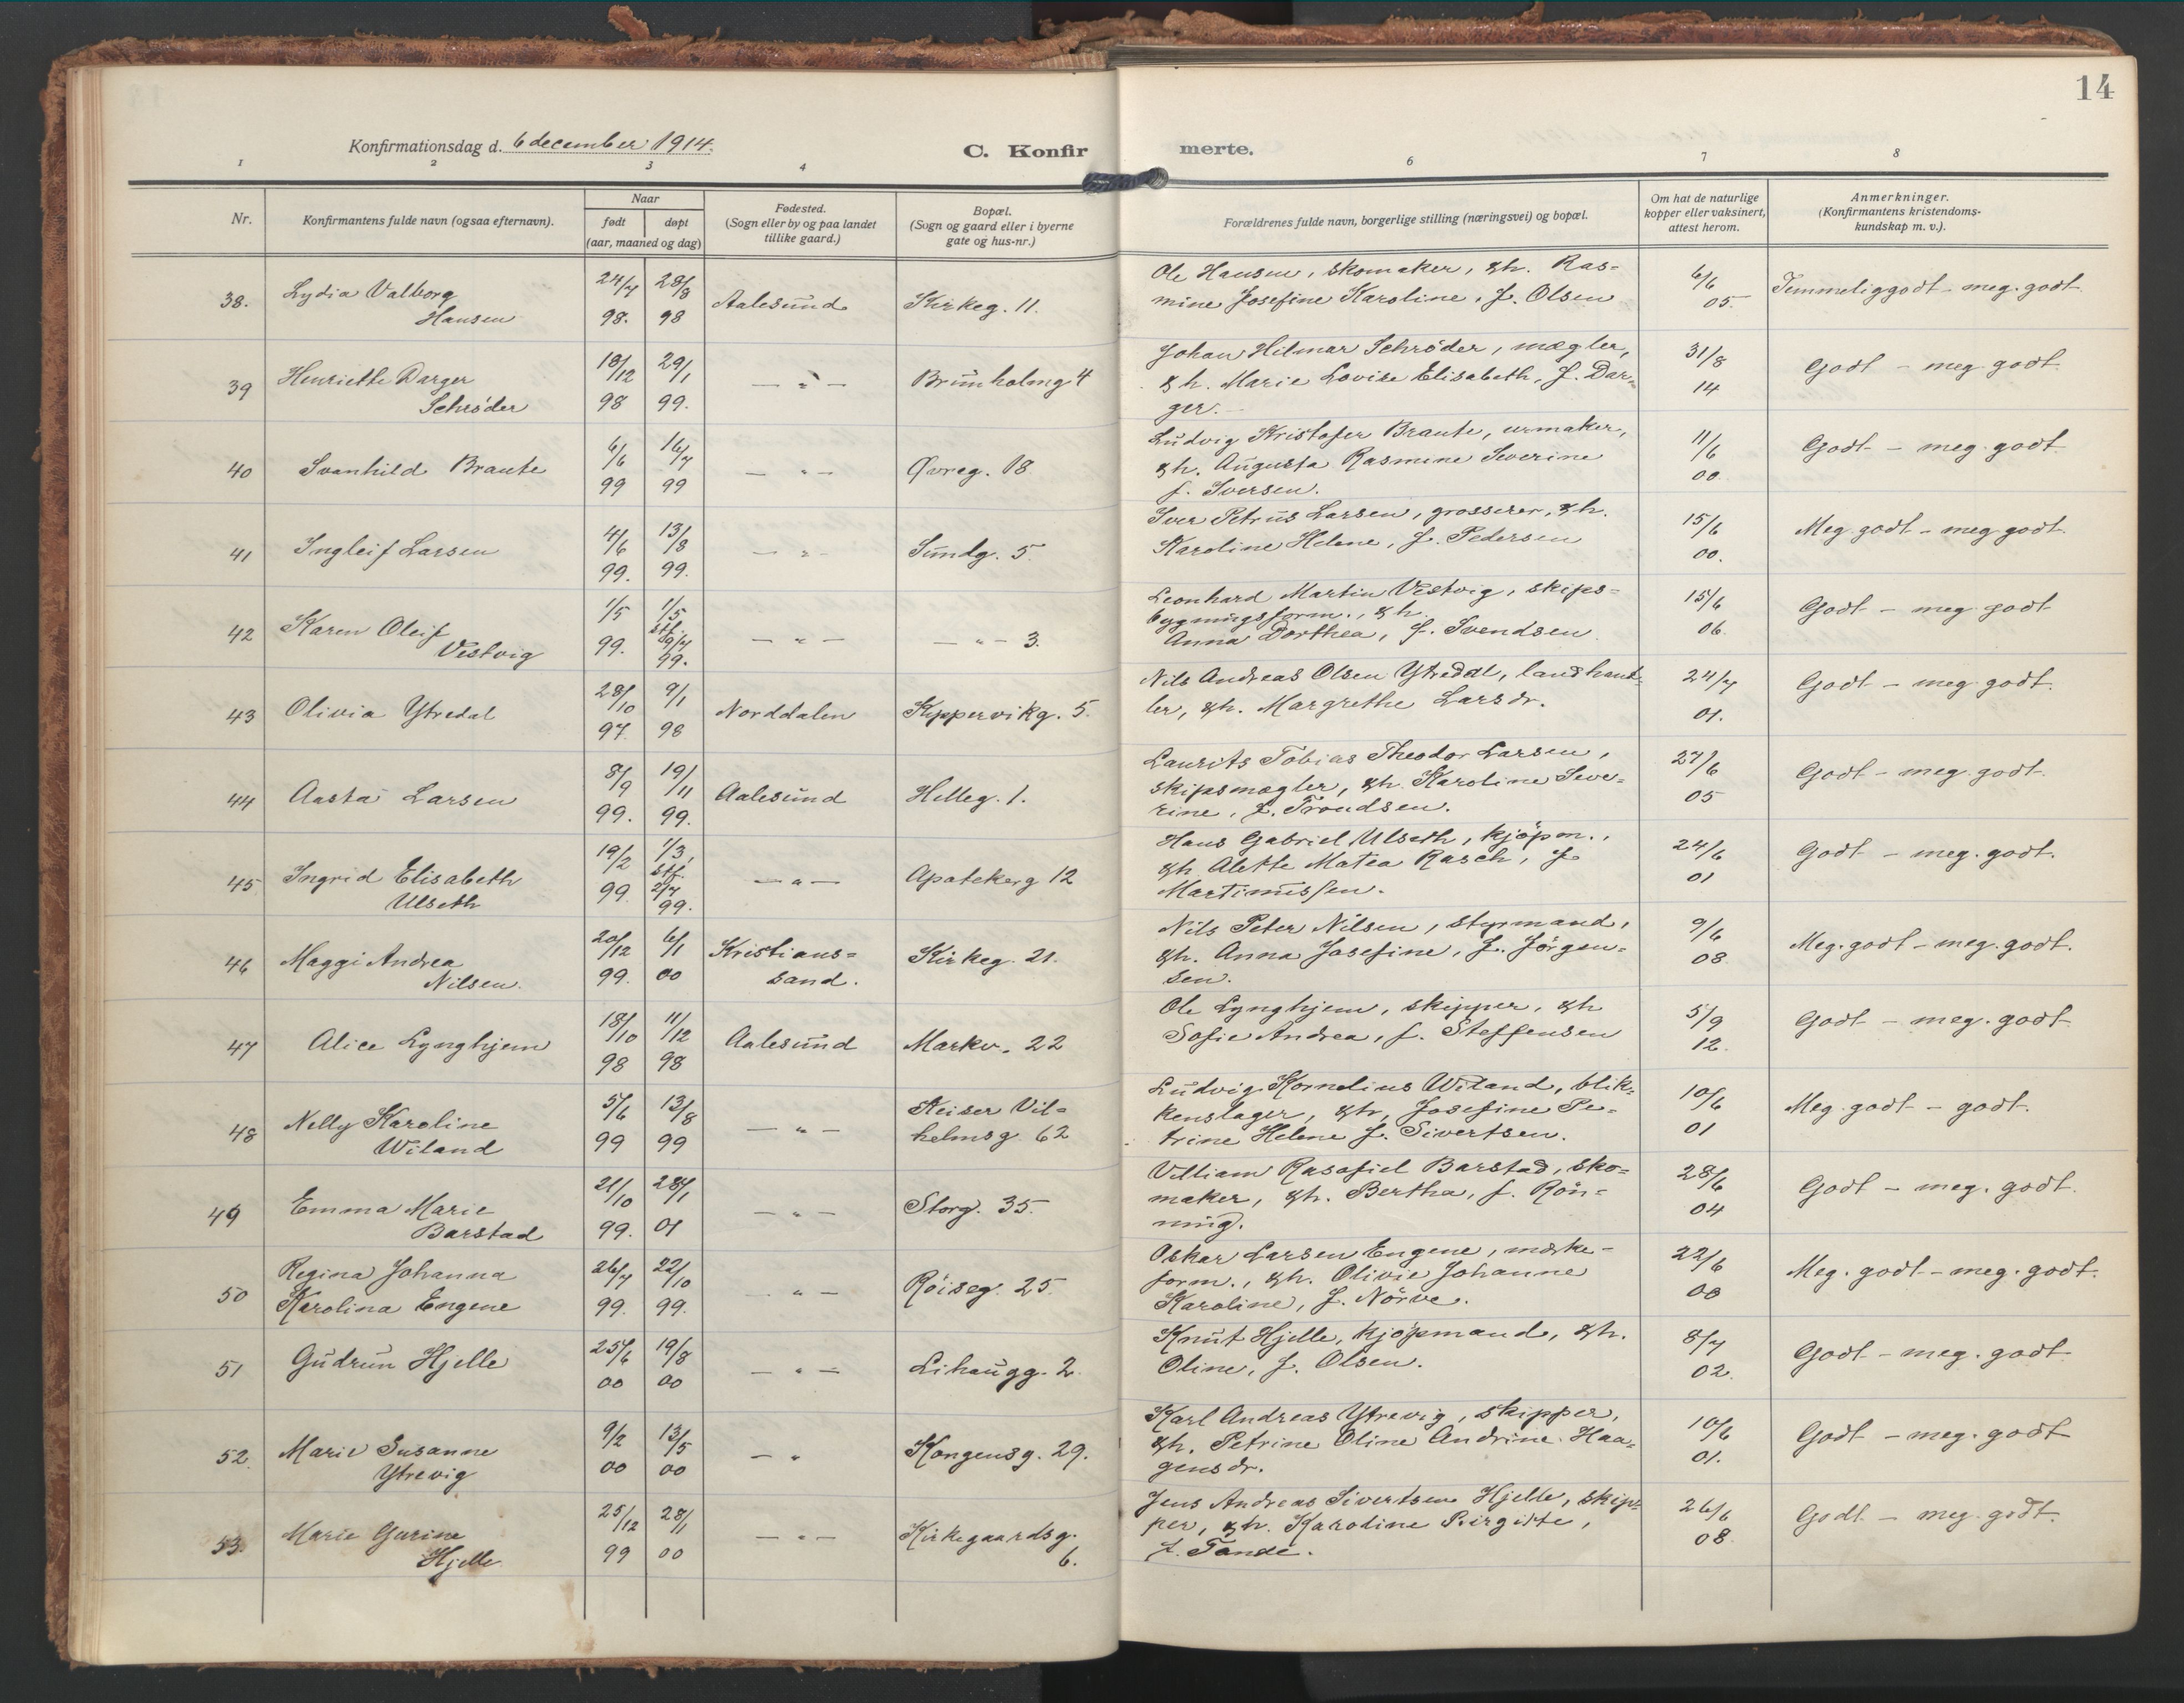 14
Konfirmationsdag d. 6 december 1914.
C. Konfirmerte.
1 2 3 4 6 7 8
Nr.
Konfirmantens fulde navn (ogsaa efternavn).
Naar
født
døpt
(aar, maaned og dag)
Fødested.
(Sogn eller by og paa landet
tillike gaard.)
Bopæl.
(Sogn og gaard eller i byerne
gate og hus-nr.)
Forældrenes fulde navn, borgerlige stilling (næringsvei) og bopæl.
Om hat de naturlige
kopper eller vaksinert,
attest herom.
Anmerkninger.
(Konfirmantens kristendoms-
kundskap m. v.).
38. Lydia Valborg
Hansen
24/7 98. 28/8 98
Aalesund
Kirkeg. 11.
Ole Hansen, skomaker, & h. Ras-
mine Josefine Karoline, f. Olsen
6/6 05.
Temmelig godt - meg. godt.
39 Henriette Darger
Schrøder
18/12 98 29/1 99.
— " —
Brunholmg 4
Johan Hilmar Schrøder, mægler,
& h. Marie Lovise Elisabeth, f. Dar-
ger.
31/8 14
Godt - meg godt.
40 Svanhild Braute
6/6 99 16/7 99
— " —
Øvreg. 18
Ludvig Kristofer Braute, urmaker,
& h. Augusta Rasmine Severine
f. Iversen.
11/6 00.
Godt - meg. godt
41 Ingleif Larsen
4/6 99. 13/8 99.
— " —
Sundg. 5.
Iver Petrus Larsen, grosserer, & h.
Karoline Helene, f. Pedersen
15/6 00.
Meg. godt - meg godt.
42 Karen Oleif
Vestvig
1/5 99. 1/5 stf. 9/7 99.
— " —
— " — 3.
Leonhard Martin Vestvig, skips-
bygningsform., & h.
Anna Dorthea, f. Svendsen.
15/6 06.
Godt - meg godt
43 Olivia Ytredal
28/10 97. 9/1 98
Norddalen
Kippervikg. 5.
Nils Andreas Olsen Ytredal, landhand-
ler, & h. Margrethe Larsdr.
24/7 01.
Godt - meg godt.
44 Aasta Larsen
8/9 99. 19/11 99.
Aalesund
Helleg. 1.
Laurits Tobias Theodor Larsen,
skipsmægler, & h. Karoline Seve-
rine, f. Trondsen.
27/6 05
Godt - meg. godt.
45 Ingrid Elisabeth
Ulseth
19/2 99. 1/3, stf. 2/7 99.
— " —
Apotekerg 12
Hans Gabriel Ulseth, kjøpm.,
& h. Alette Matea Rasch, f
Martinussen.
24/6 01
Godt - meg. godt.
46 Maggi Andrea
Nilsen.
20/12 99. 6/1 00
Kristians-
sand.
Kirkeg. 21.
Nils Peter Nilsen, styrmand,
& h. Anna Josefine, f. Jörgen-
sen.
9/6 08.
Meg. godt - meg. godt.
47 Alice Lynghjem
18/10 98 11/12 98
Aalesund
Markv. 22
Ole Lynghjem, skipper, & h
Sofie Andrea, f. Steffensen
5/9 12.
Godt - meg. godt
48 Nelly Karoline
Wiland
5/6 99 13/8 99
— " —
Keiser Vil-
helmsg. 62
Ludvig Kornelius Wiland, blik-
kenslager, & h, Josefine Pe-
trine Helene f. Sivertsen.
10/6 01
Meg. godt - godt.
49 Emma Marie
Barstad
21/10 99. 28/1 01
— " —
Storg. 35.
Villiam Rasafiel Barstad, sko-
maker, & h. Bertha, f. Rön-
ning.
28/6 04
Godt - meg. godt.
50 Regina Johanna
Karolina Engene
26/7 99. 22/10 99.
— " —
Röiseg. 25.
Oskar Larsen Engene, mærke-
form., & h. Olivie Johanne
Karoline, f. Nörve.
22/6 00
Meg. godt - meg. godt.
51 Gudrun Hjelle
25/6 00 19/8 00
— " —
Lihaugg. 2.
Knut Hjelle, kjöpmand, & h.
Oline, f. Olsen.
8/7 02.
Godt - meg. godt
52. Marie Susanne
Ytrevig
9/2 00 13/5 00
— "
Kongensg. 29.
Karl Andreas Ytrevig, skipper,
& h. Petrine Oline Andrine Haa-
gensdr.
10/6 01.
Godt - meg. godt
53. Marie Gurine
Hjelle.
25/12 99 28/1 00
— " —
Kirkegaardsg.
6.
Jens Andreas Sivertsen Hjelle, skip-
per, & h. Karoline Birgitte,
f. Tande.
26/6 08
Godt - meg. godt.